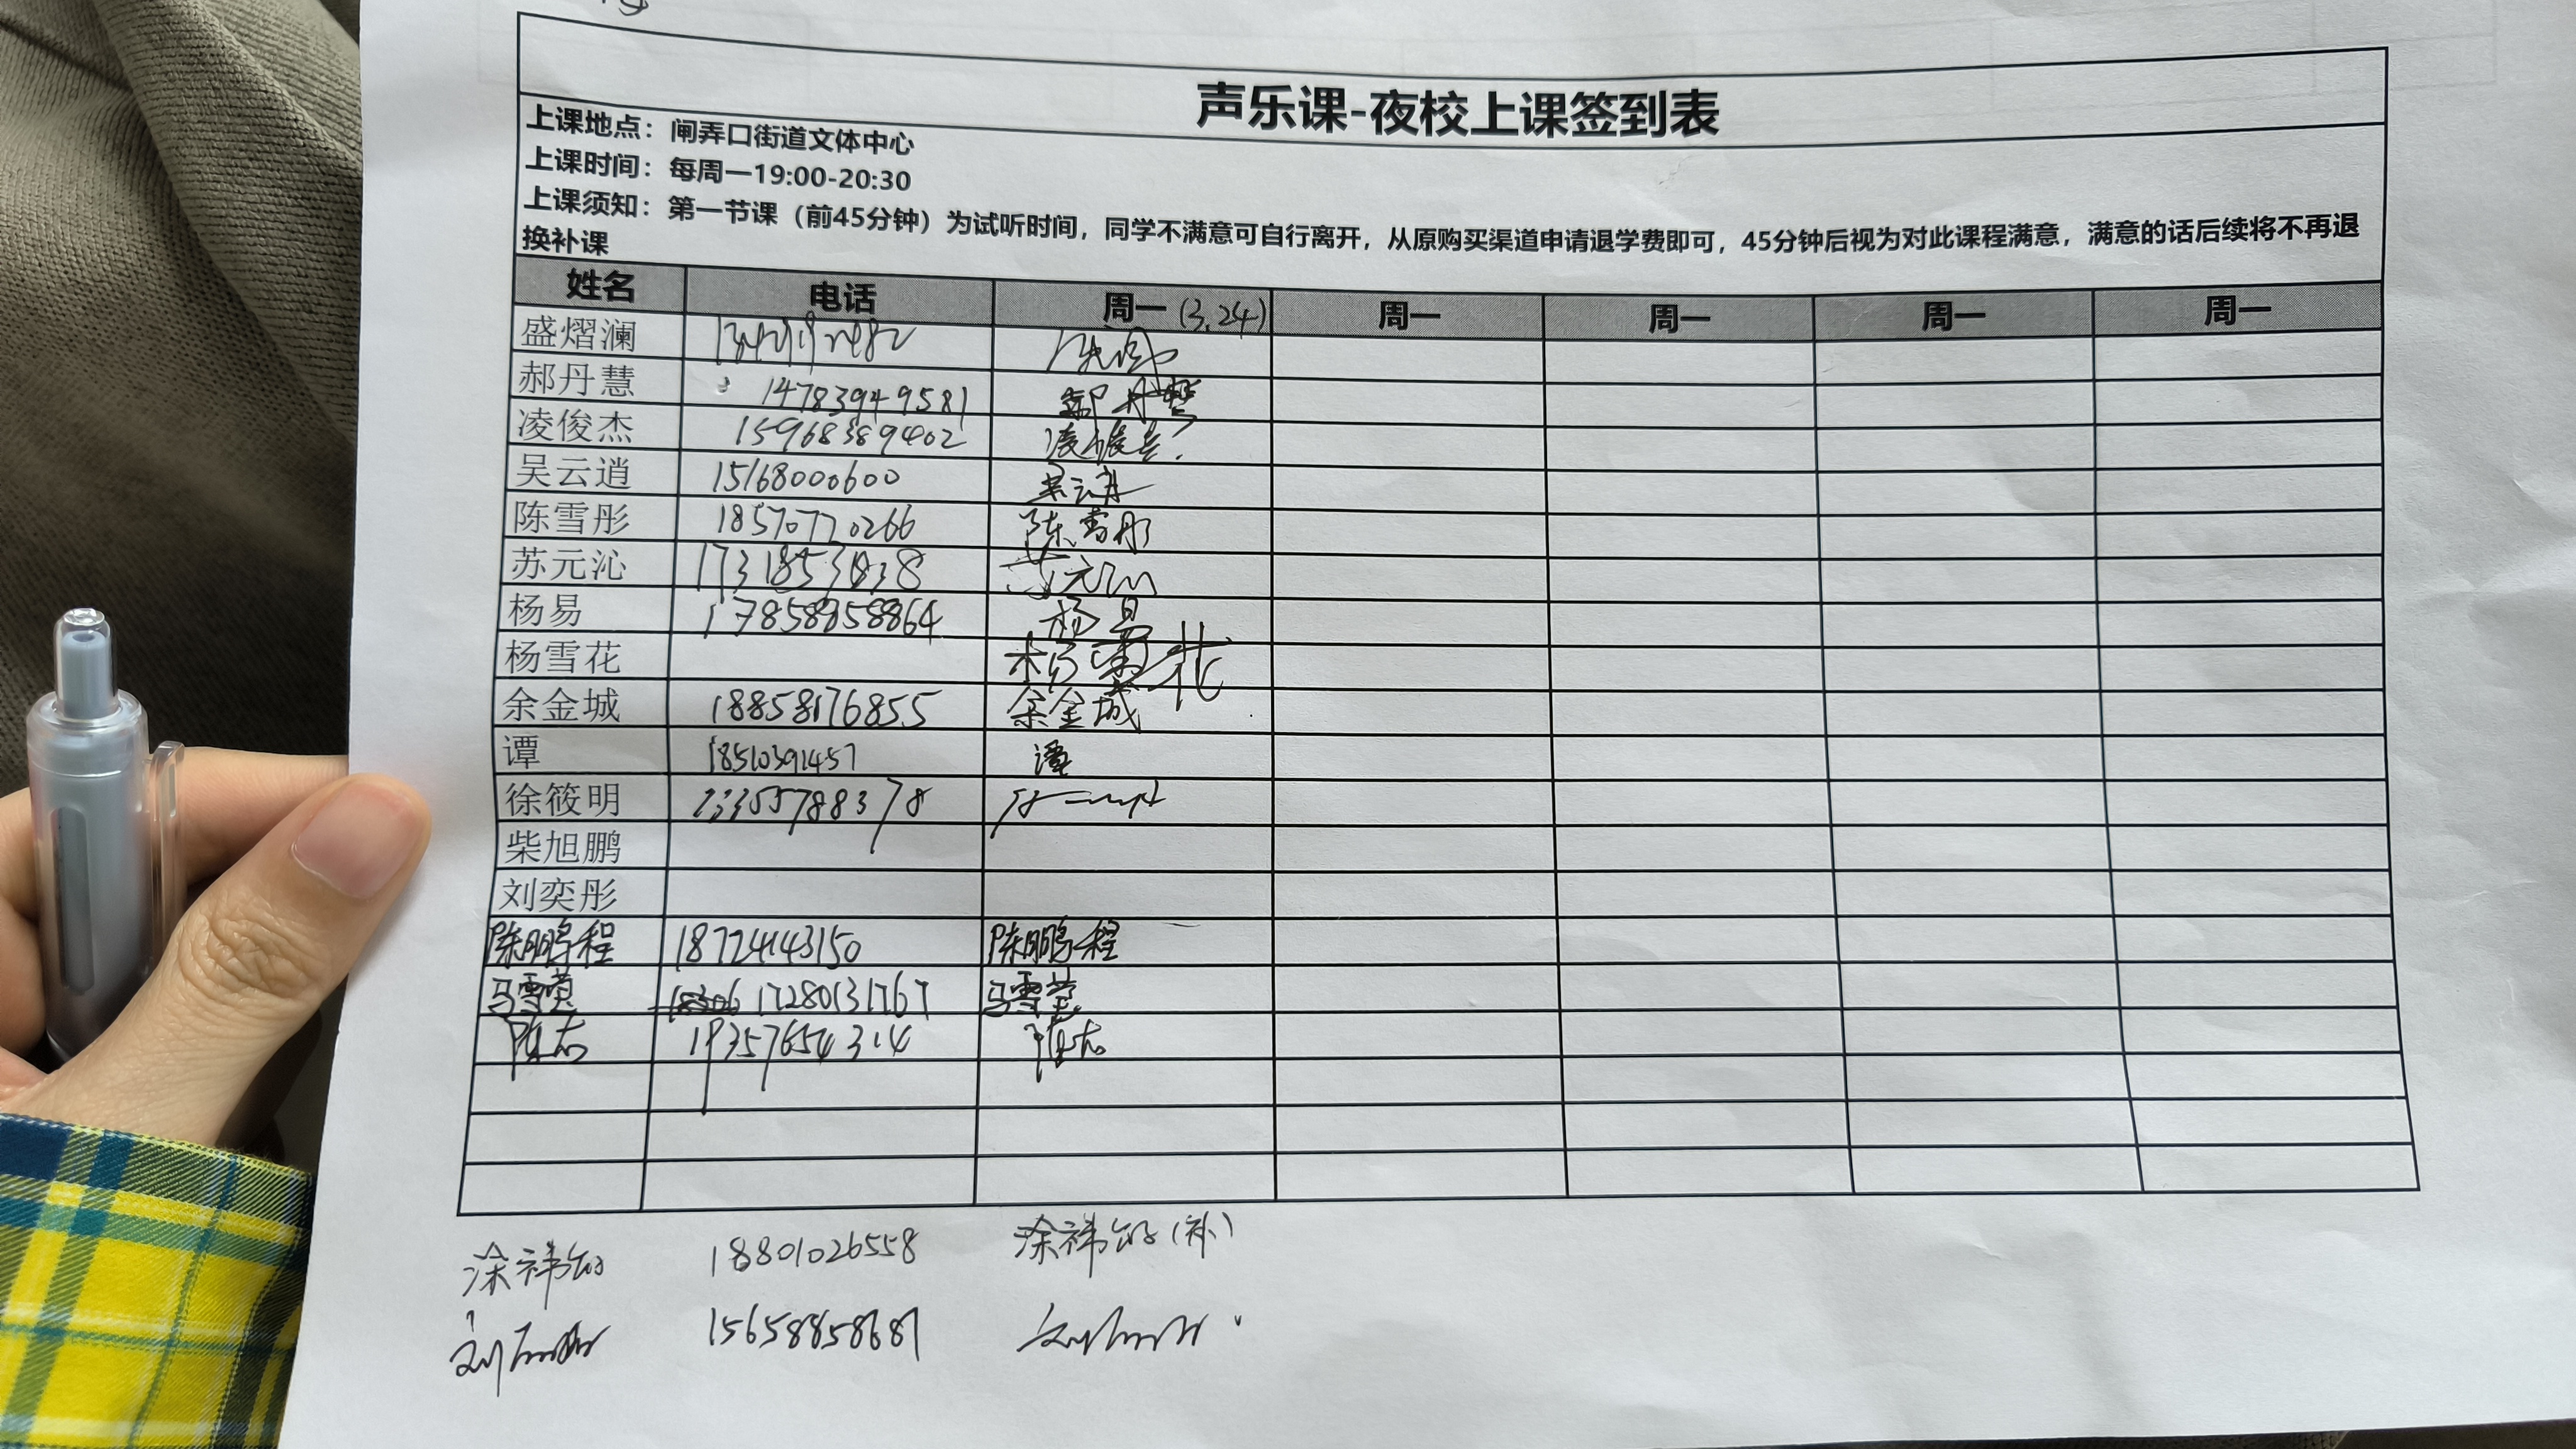 声乐课-夜校上课签到表
上课地点：闸弄口街道文体中心
上课时间：每周一19:00-20:30
上课须知：第一节课（前45分钟）为试听时间，同学不满意可自行离开，从原购买渠道申请退学费即可，45分钟后视为对此课程满意，满意的话后续将不再退
换补课
姓名 电话 周一 (3.24) 周一 周一 周一 周一
盛熠澜
郝丹慧 14783949581 郝丹慧
凌俊杰 15968389402 凌俊杰
吴云逍 15168000600 吴云逍
陈雪彤 18570770266 陈雪彤
苏元沁 苏元沁
杨易 17858958864 杨易
杨雪花 杨雪花
余金城 18858176855 余金城
谭 18510391457 谭
徐筱明
柴旭鹏
刘奕彤
陈鹏程 18724143150 陈鹏程
马雪莹 17280131767 马雪莹
19357654314
18801026558 (补)
15658858681